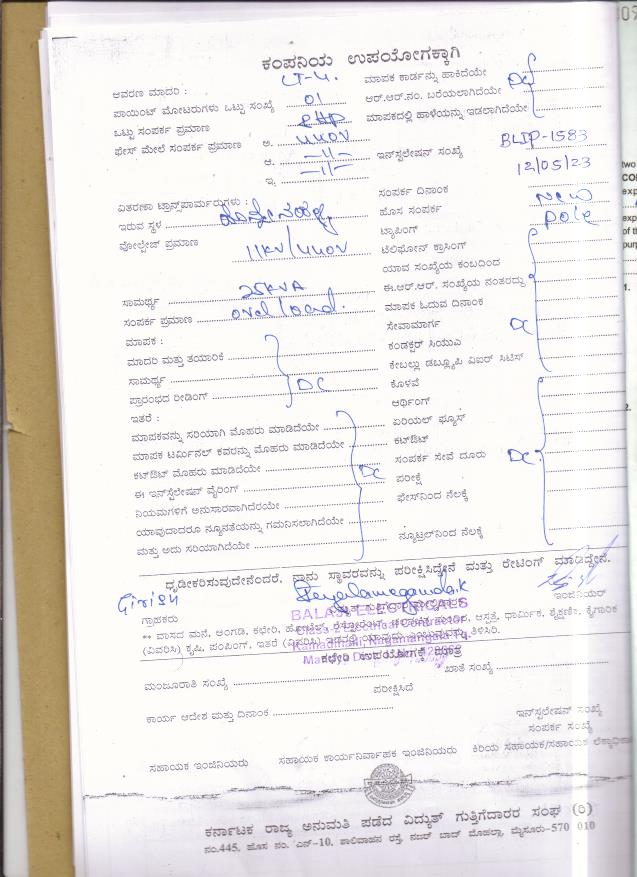 ಕಂಪನಿಯ ಉಪಯೋಗಕ್ಕಾಗಿ
ಆವರಣ ಮಾದರಿ : LT-4. ಮಾಪಕ ಕಾರ್ಡನ್ನು ಹಾಕಿದೆಯೇ
ಪಾಯಿಂಟ್ ಮೋಟರುಗಳು ಒಟ್ಟು ಸಂಖ್ಯೆ 01 ಆರ್.ಆರ್.ನಂ. ಬರೆಯಲಾಗಿದೆಯೇ
ಒಟ್ಟು ಸಂಪರ್ಕ ಪ್ರಮಾಣ ಮಾಪಕದಲ್ಲಿ ಹಾಳೆಯನ್ನು ಇಡಲಾಗಿದೆಯೇ
ಫೇಸ್ ಮೇಲೆ ಸಂಪರ್ಕ ಪ್ರಮಾಣ ಅ. 440V
ಆ. —11— ಇನ್‌ಸ್ಟಲೇಷನ್ ಸಂಖ್ಯೆ BLIP-1583
ಇ. —11— 12/05/23
ವಿತರಣಾ ಟ್ರಾನ್ಸ್‌ಪಾರ್ಮರುಗಳು : ಸಂಪರ್ಕ ದಿನಾಂಕ
ಇರುವ ಸ್ಥಳ ಹೊಸ ಸಂಪರ್ಕ New
ವೋಲ್ಟೇಜ್ ಪ್ರಮಾಣ 11KV/440V ಟ್ಯಾಪಿಂಗ್ pole
ಟೆಲಿಫೋನ್ ಕ್ರಾಸಿಂಗ್
ಯಾವ ಸಂಖ್ಯೆಯ ಕಂಬದಿಂದ
ಸಾಮರ್ಥ್ಯ 25KVA ಈ.ಆರ್.ಆರ್. ಸಂಖ್ಯೆಯ ನಂತರದ್ದು
ಸಂಪರ್ಕ ಪ್ರಮಾಣ ಮಾಪಕ ಓದುವ ದಿನಾಂಕ
ಮಾಪಕ : ಸೇವಾಮಾರ್ಗ DC
ಮಾದರಿ ಮತ್ತು ತಯಾರಿಕೆ ಕಂಡಕ್ಟರ್ ಸಿಯುಎ
ಸಾಮರ್ಥ್ಯ ಕೇಬಲ್ಲು ಡಬ್ಲ್ಯೂಪಿ ವಿಐರ್ ಸಿಟಿಸ್
ಪ್ರಾರಂಭದ ರೀಡಿಂಗ್ DC ಕೊಳವೆ
ಇತರೆ : ಆರ್ಥಿಂಗ್
ಮಾಪಕವನ್ನು ಸರಿಯಾಗಿ ಮೊಹರು ಮಾಡಿದೆಯೇ ಏರಿಯಲ್ ಫ್ಯೂಸ್
ಮಾಪಕ ಟರ್ಮಿನಲ್ ಕವರನ್ನು ಮೊಹರು ಮಾಡಿದೆಯೇ ಕಟ್‌ಔಟ್
ಕಟ್‌ಔಟ್ ಮೊಹರು ಮಾಡಿದೆಯೇ ಸಂಪರ್ಕ ಸೇವೆ ದೂರು DC
ಈ ಇನ್‌ಸ್ಟಲೇಷನ್ ವೈರಿಂಗ್ DC ಪರೀಕ್ಷೆ
ನಿಯಮಗಳಿಗೆ ಅನುಸಾರವಾಗಿದೆಯೇ ಫೇಸ್‌ನಿಂದ ನೆಲಕ್ಕೆ
ಯಾವುದಾದರೂ ನ್ಯೂನತೆಯನ್ನು ಗಮನಿಸಲಾಗಿದೆಯೇ
ಮತ್ತು ಅದು ಸರಿಯಾಗಿದೆಯೇ ನ್ಯೂಟ್ರಲ್‌ನಿಂದ ನೆಲಕ್ಕೆ
ಧೃಡೀಕರಿಸುವುದೇನೆಂದರೆ, ನಾನು ಸ್ಥಾವರವನ್ನು ಪರೀಕ್ಷಿಸಿದ್ದೇನೆ ಮತ್ತು ರೇಟಿಂಗ್ ಮಾಡಿದ್ದೇನೆ.
Girish
BALAJI ELECTRICALS
ಗ್ರಾಹಕರು ಇಂಜಿನಿಯರ್
Electrical Contractor
** ವಾಸದ ಮನೆ, ಅಂಗಡಿ, ಕಛೇರಿ, ಹೋಟೆಲ್, ಆಸ್ಪತ್ರೆ, ಧಾರ್ಮಿಕ, ಶೈಕ್ಷಣಿಕ, ಕೈಗಾರಿಕ
(ವಿವರಿಸಿ) ಕೃಷಿ, ಪಂಪಿಂಗ್, ಇತರೆ (ವಿವರಿಸಿ) ತಿಳಿಸಿರಿ.
ಕಛೇರಿ ಉಪಯೋಗಕ್ಕೆ ಮಾತ್ರ
ಮಂಜೂರಾತಿ ಸಂಖ್ಯೆ ಖಾತೆ ಸಂಖ್ಯೆ
ಪರೀಕ್ಷಿಸಿದೆ
ಕಾರ್ಯ ಆದೇಶ ಮತ್ತು ದಿನಾಂಕ ಇನ್‌ಸ್ಟಲೇಷನ್ ಸಂಖ್ಯೆ
ಸಂಪರ್ಕ ಸಂಖ್ಯೆ
ಸಹಾಯಕ ಇಂಜಿನಿಯರು ಸಹಾಯಕ ಕಾರ್ಯನಿರ್ವಾಹಕ ಇಂಜಿನಿಯರು ಕಿರಿಯ ಸಹಾಯಕ/ಸಹಾಯಕ
ಕರ್ನಾಟಕ ರಾಜ್ಯ ಅನುಮತಿ ಪಡೆದ ವಿದ್ಯುತ್ ಗುತ್ತಿಗೆದಾರರ ಸಂಘ (ರಿ)
ನಂ.445, ಹೊಸ ನಂ. ಎನ್-10, ಶಾಲಿವಾಹನ ರಸ್ತೆ, ನಜರ್ ಬಾದ್ ಮೊಹಲ್ಲಾ, ಮೈಸೂರು-570 010